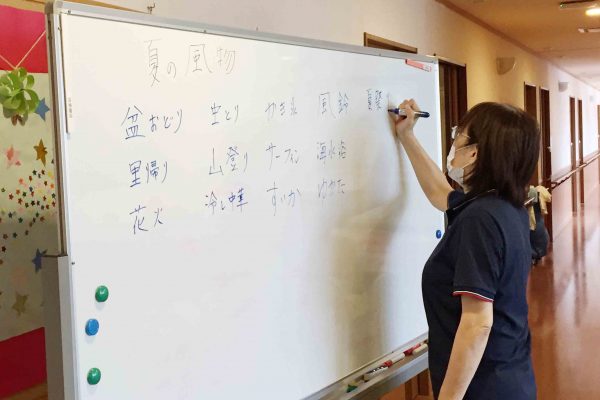 夏の風物
盆おどり 虫とり かき氷 風鈴 夏祭
里帰り 山登り サーフィン 海水浴
花火 冷し中華 すいか ゆかた